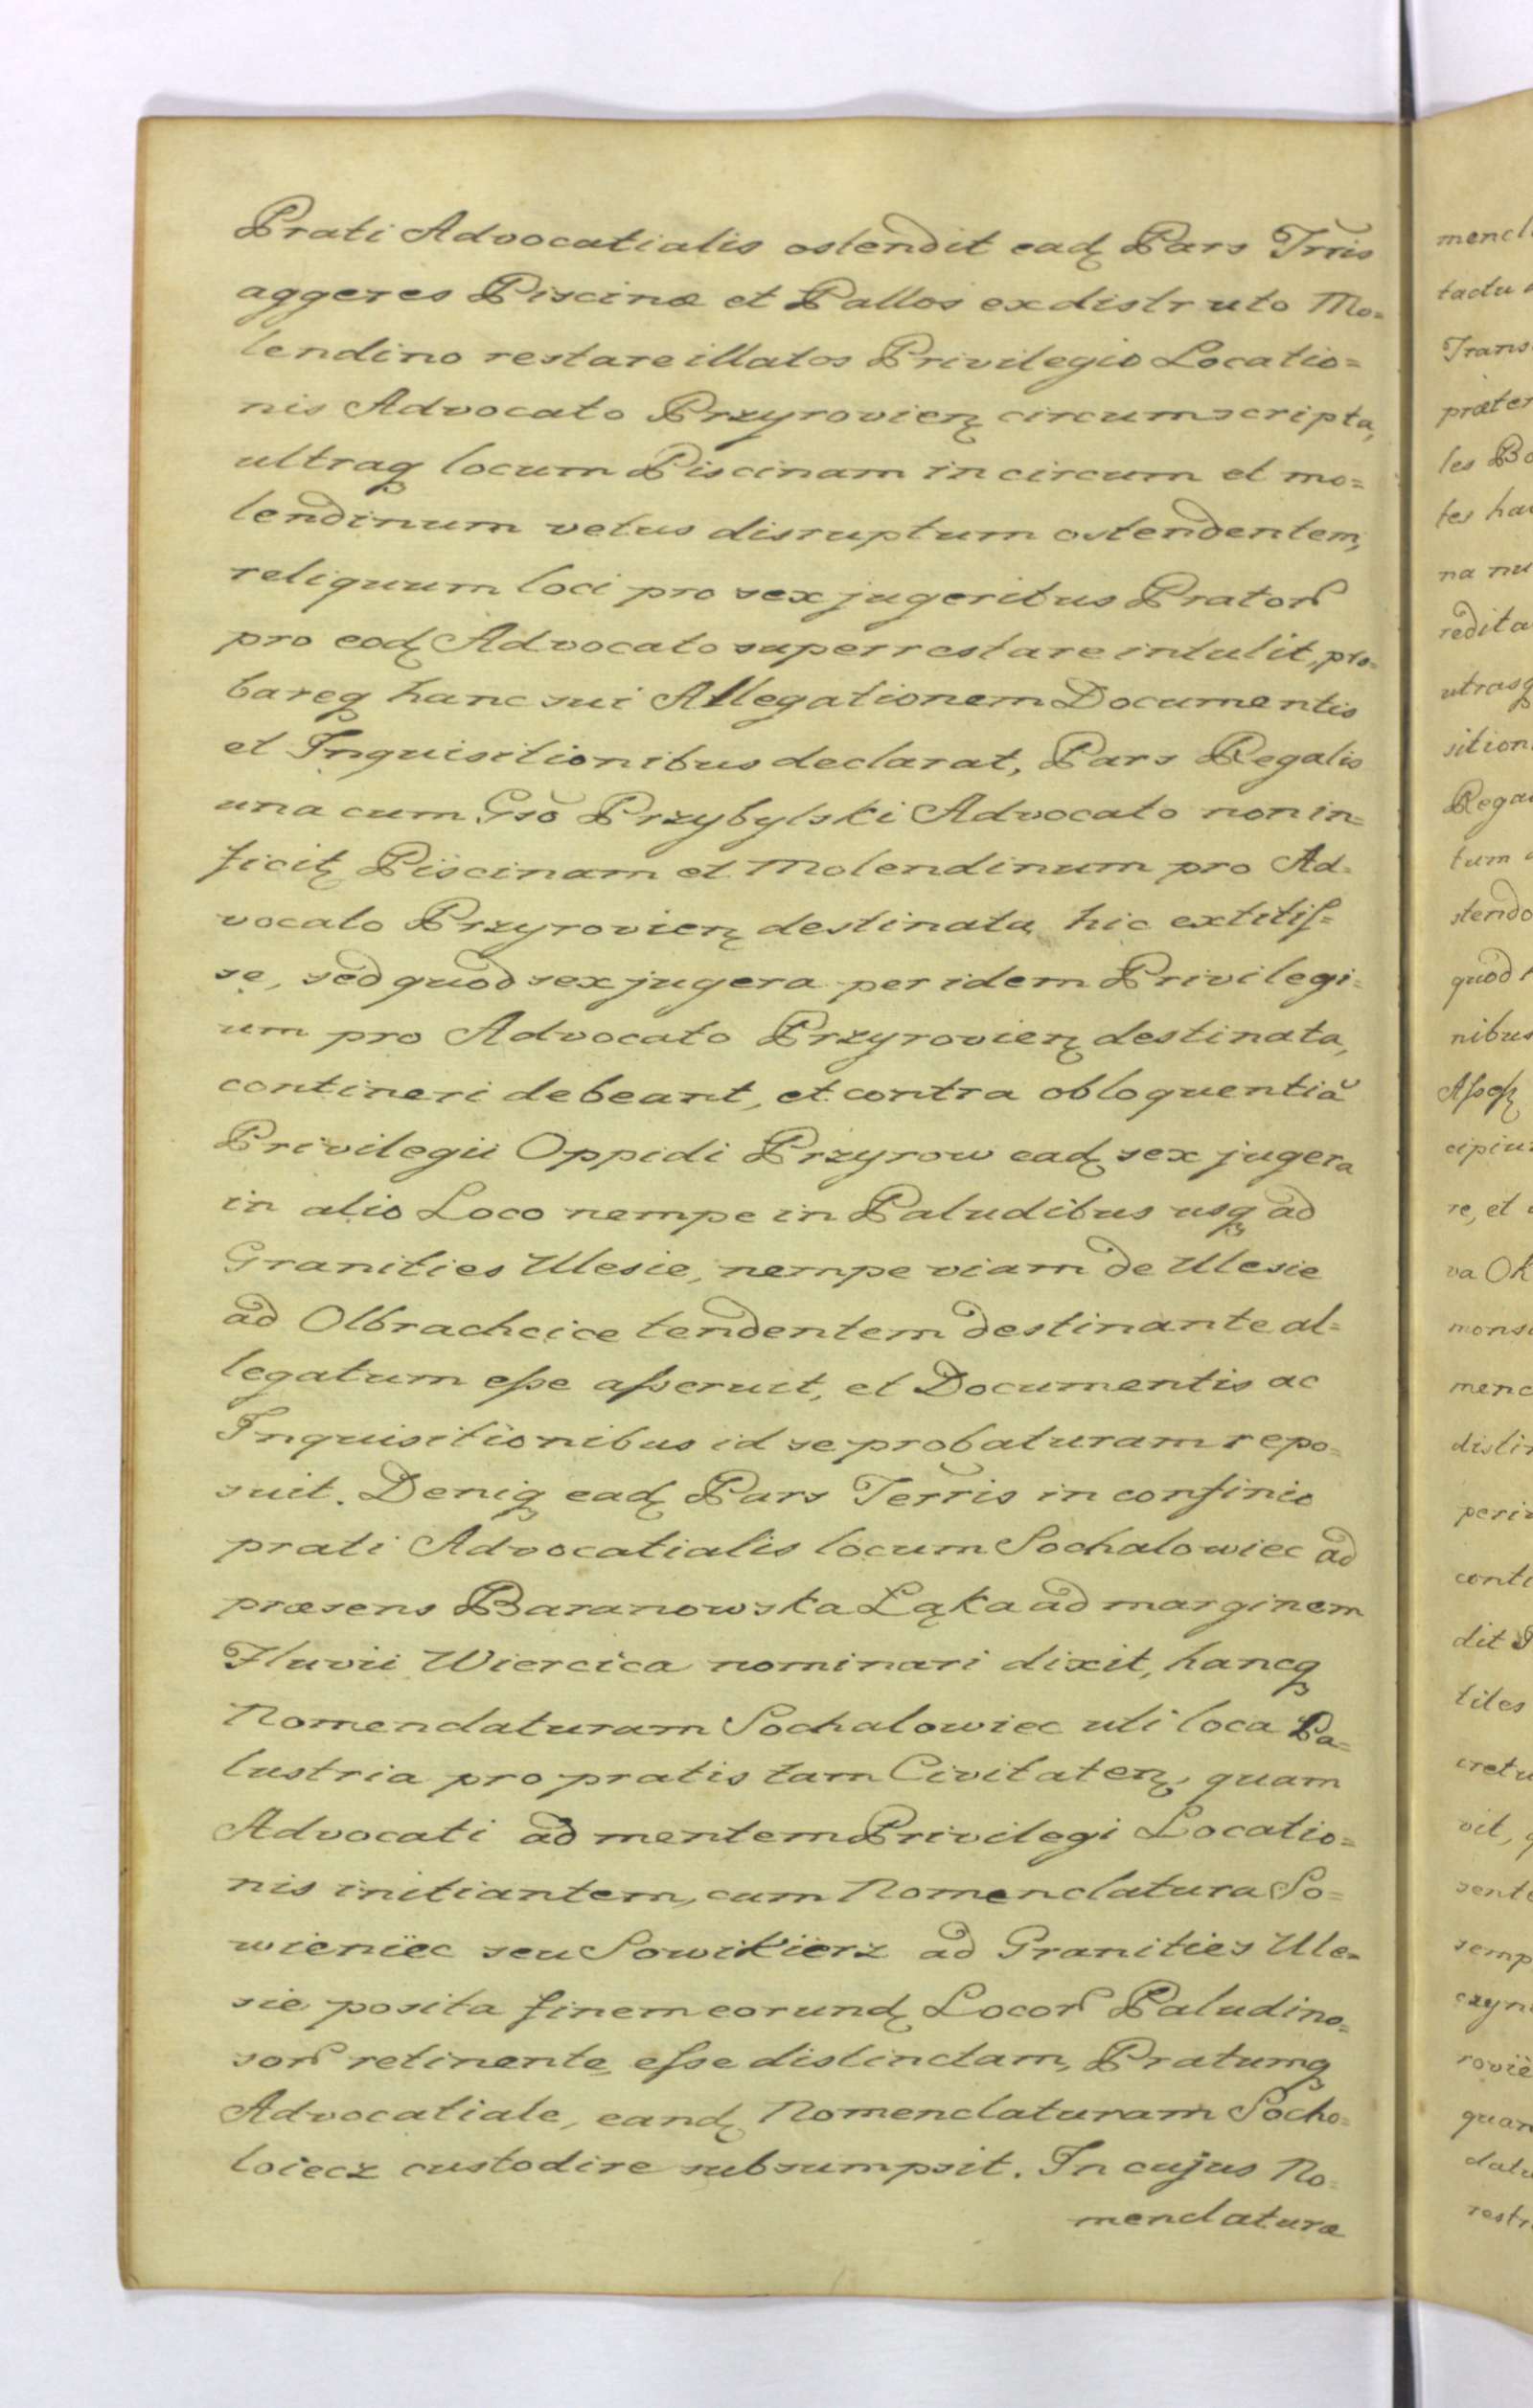 Prati Advocatialis ostendit ead. Pars Trris
aggeres Piscinæ et Pallos ex distructo Mo=
lendino restare illatos Privilegio Locatio=
nis Advocato Przyrovien. circumscripta,
ultraq locum Piscinam in circum et mo=
lendinum vetus disruptum ostendentem,
reliquum loci pro sex jugeribus Prator
pro eod. Advocato superrestare intulit, pro=
bareq hanc sui Allegationem Documentis
et Inquisitionibus declarat, Pars Regalis
una cum Gso Przybylski Advocato non in=
ficit. Piscinam et Molendinum pro Ad=
vocato Przyrovien. destinata hic extitiſ=
se, sed quod sex jugera per idem Privilegi=
um pro Advocato Przyrovien. destinata,
contineri debeant, et contra obloquentiã
Privilegii Oppidi Przyrow ead. sex jugera
in alio Loco nempe in Paludibus usq ad
Granities Ulesie, nempe viam de Ulesie
ad Olbrachcice tendentem destinante al=
legatum eſse aſseruit, et Documentis ac
Inquisitionibus id se probaturam repo=
suit. Deniq ead. Pars Terris in confinio
prati Advocatialis locum Sochalowiec ad
præsens Baranowska Łąka ad marginem
Fluvii Wiercica nominari dixit, hancq
Nomenclaturam Sochalowiec uti loca Pa=
lustria pro pratis tam Civitaten. quam
Advocati ad mentem Privilegi Locatio=
nis initiantem, cum Nomenclatura So=
wieniec seu Sowikierz ad Granities Ule=
sie posita finem eorund. Locor Paludino=
sor retinente eſse distinctam, Pratumq
Advocatiale, eand. Nomenclaturam Socho=
loiecz custodire subsumpsit. In cujus No=
menclaturæ